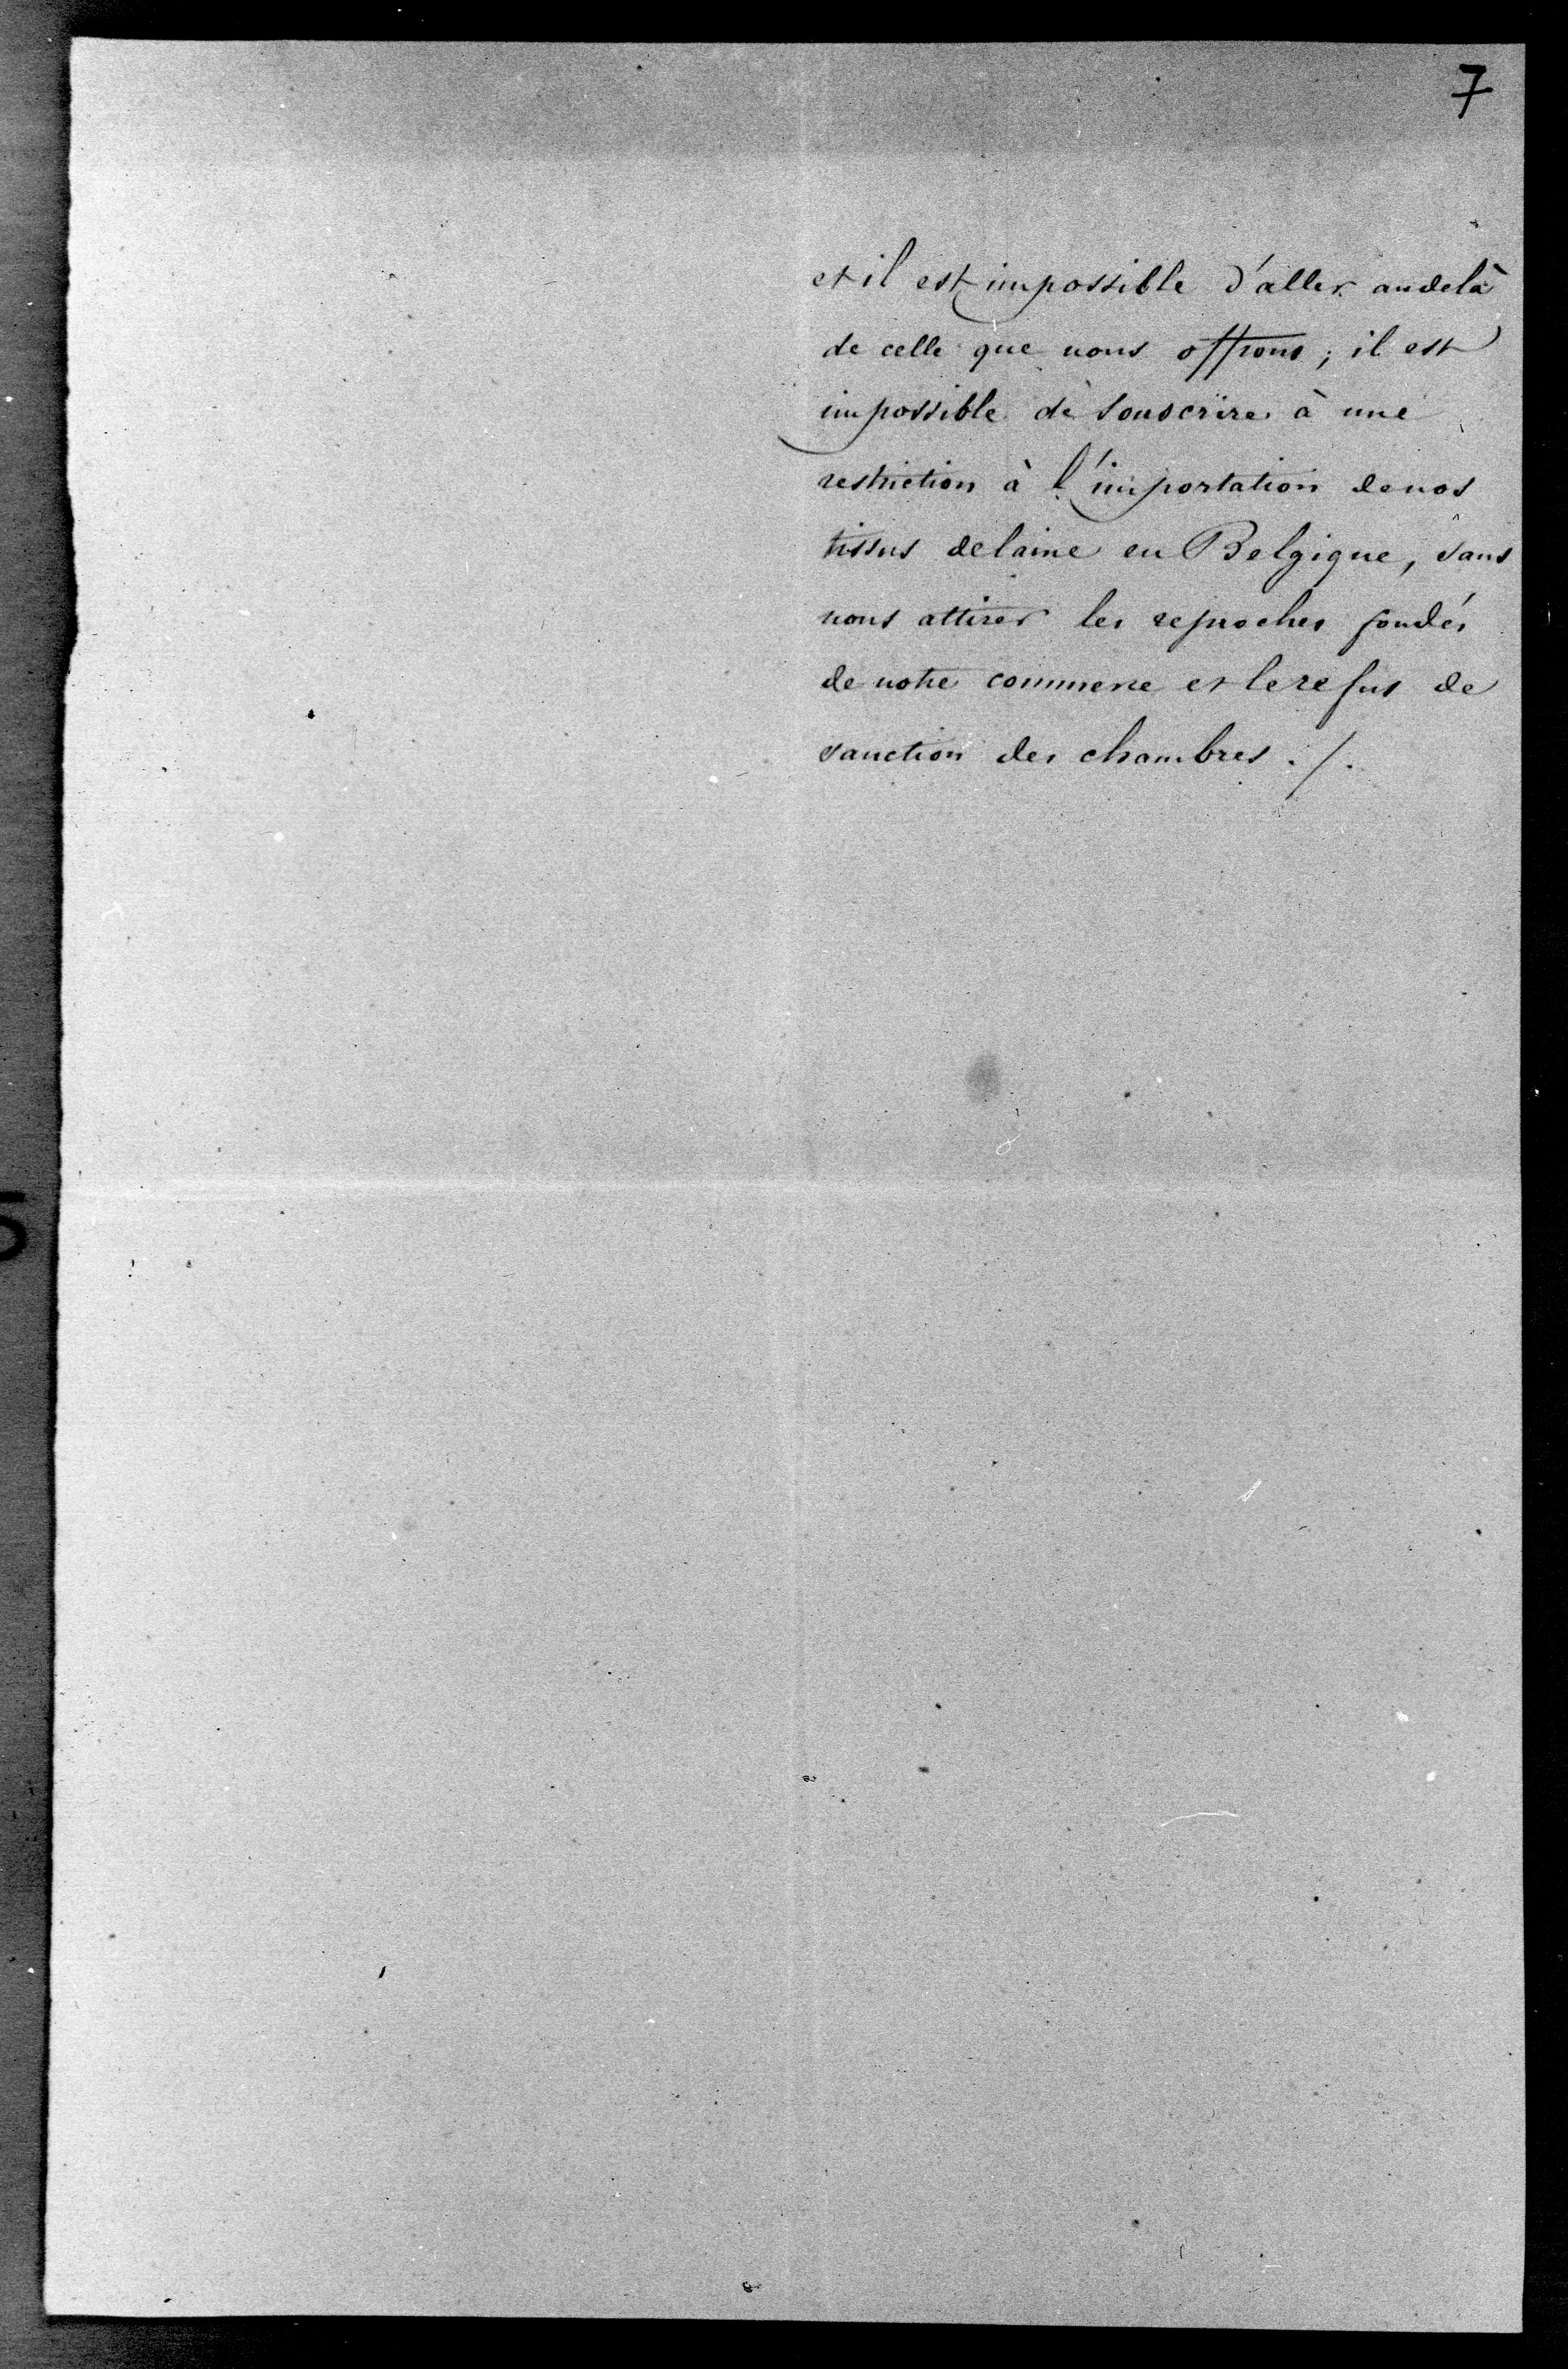 7
et il est impossible d'aller au delà
de celle que nous offrons ; il est
impossible de souscrire à une
restriction à l'importation de nos
tissus de laine en Belgique, sans
nous attirer les reproches fondés
de notre commerce et le refus de
sanction des chambres ./.